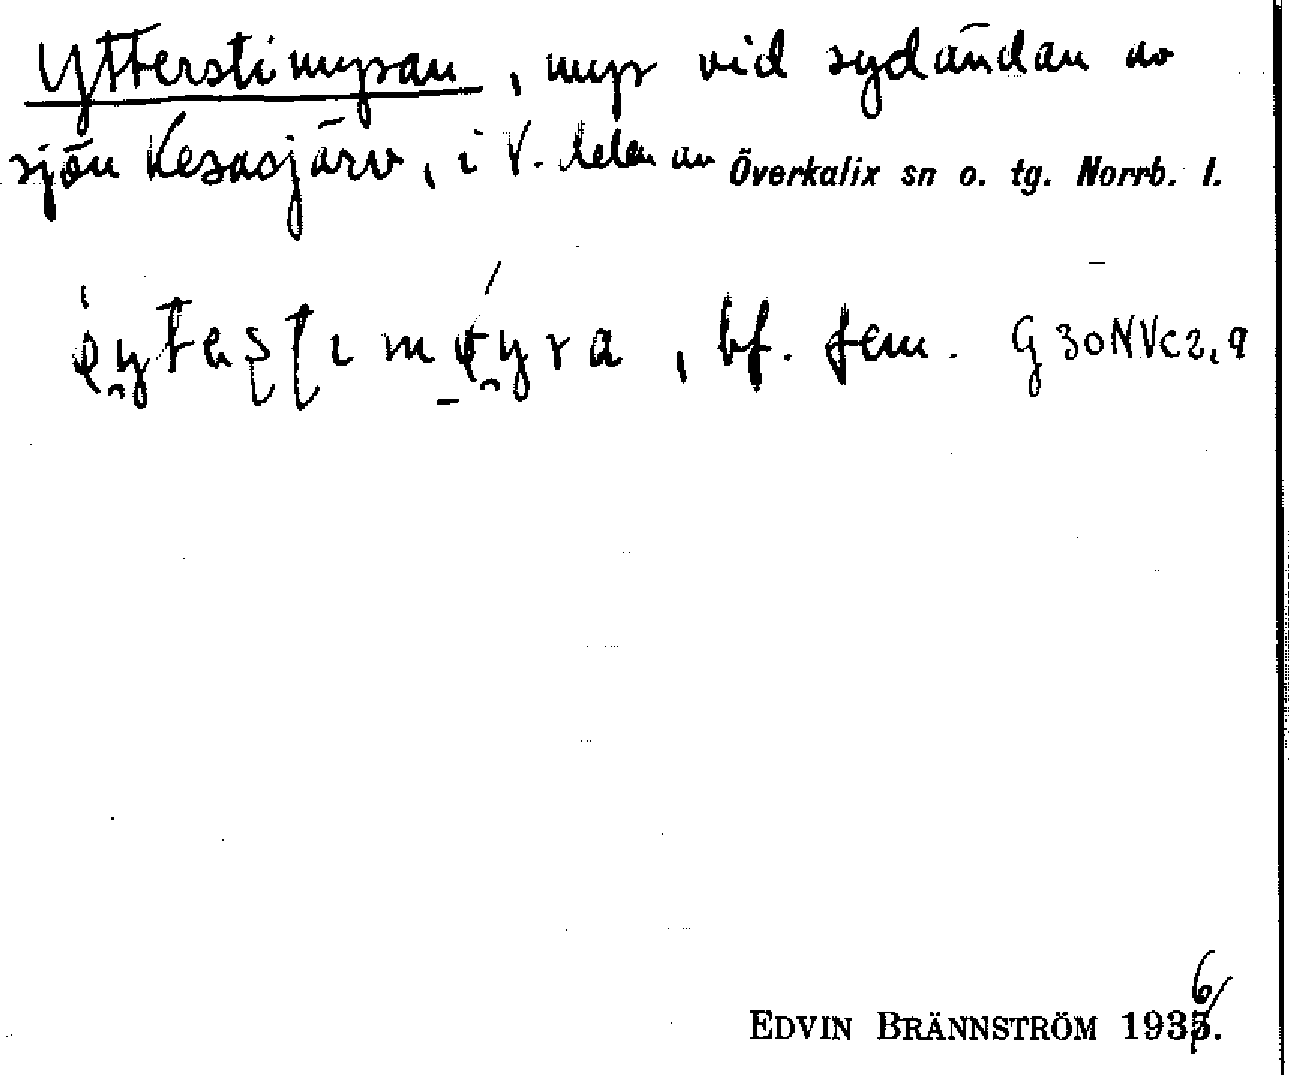 Ytterstimyran, myr vid sydändan av
sjön Kesasjärv, i V. delen av Överkalix sn o. tg. Norrb. l.
, bf. fem. G30NVc2,9
EDVIN BRÄNNSTRÖM 1936.